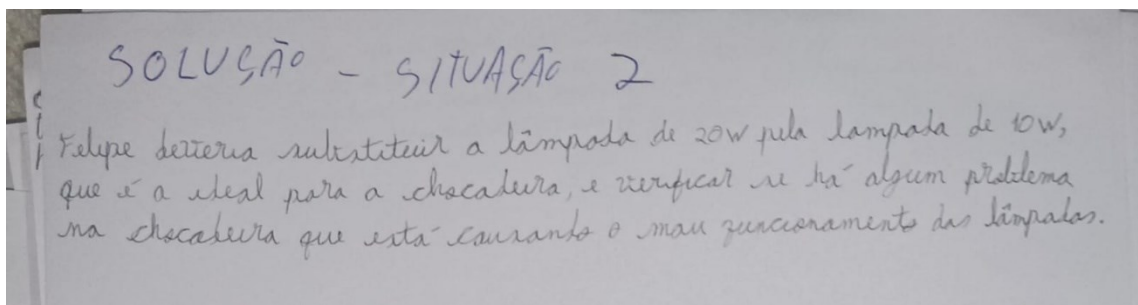 SOLUÇÃO - SITUAÇÃO 2
Felipe deveria substituir a lâmpada de 20W pela lampada de 10W,
que é a ideal para a chocadeira, e verificar se há algum problema
na chocadeira que está causando o mau funcionamento das lâmpadas.